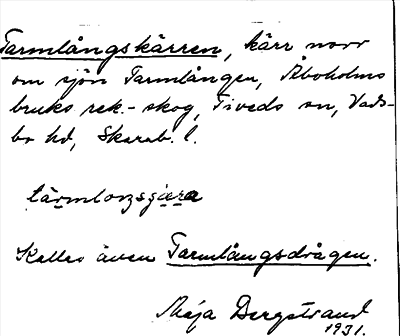 Tarmlångskärren, kärr norr
om sjön Tarmlången, Åboholms
bruks rek.-skog, Tiveds sn, Vads-
bo hd, Skarab. l.
Kallas även Tarmlångsdrågen.
Maja Bergstrand
1931.